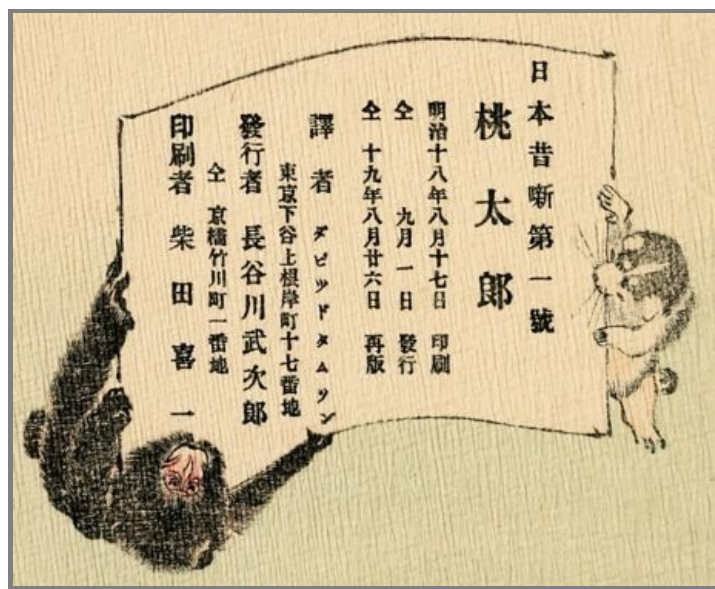 日本昔噺第一號
桃太郎
明治十八年八月十七日 印刷
仝 九月一日 發行
仝 十九年八月廿六日 再版
譯者 ダビツドタムソン
東亰下谷上根岸町十七番地
發行者 長谷川武次郎
仝 亰橋竹川町一番地
印刷者 柴田喜一